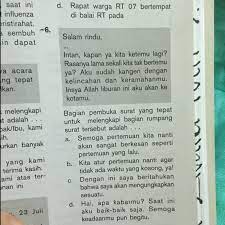 saat ini
influenza
eristirahat.
sembuh
in dapat
acara
ng tepat
lkan.
melengkapi
adalah ...
bak/Ibu, kami
sih.
urkan banyak
yang kami
terima kasih.
ami atas ter-
nan ini
23 Juli
d. Rapat warga RT 07 bertempat
di balai RT pada
6.
Salam rindu,
...
Intan, kapan ya kita ketemu lagi?
Rasanya lama sekali kita tak bertemu
ya? Aku sudah kangen dengan
kelincahan dan keramahanmu.
Insya Allah liburan ini aku akan ke
kotamu.
Bagian pembuka surat yang tepat
untuk melengkapi bagian rumpang
surat tersebut adalah ...
a. Semoga pertemuan kita nanti
akan sangat berkesan seperti
pertemuan yang lalu.
b. Kita atur pertemuan nanti agar
tidak ada waktu yang kosong, ya!
c. Dengan ini saya beritahukan
bahwa saya akan mengungkapkan
sesuatu.
d. Hai, apa kabarmu? Saat ini
aku baik-baik saja. Semoga
keadaanmu pun begitu.